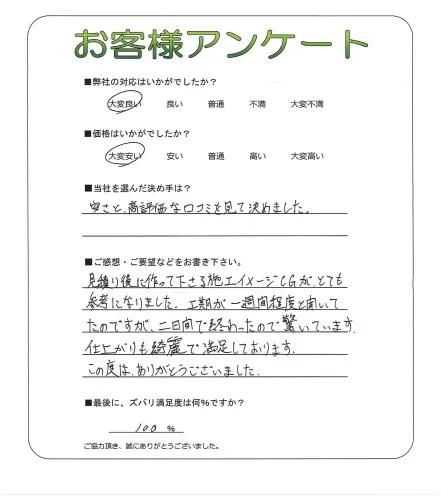 お客様アンケート
■弊社の対応はいかがでしたか？
大変良い 良い 普通 不満 大変不満
■価格はいかがでしたか？
大変安い 安い 普通 高い 大変高い
■当社を選んだ決め手は？
安さと、高評価な口コミを見て決めました。
■ご感想・ご要望などをお書き下さい。
見積り後に作って下さる施工イメージCGが、とても
参考になりました。工期が一週間程度と聞いて
たのですが、二日間で終わったので驚いています。
仕上がりも綺麗で満足しております。
この度は、ありがとうございました。
■最後に、ズバリ満足度は何%ですか？
100 %
ご協力頂き、誠にありがとうございました。